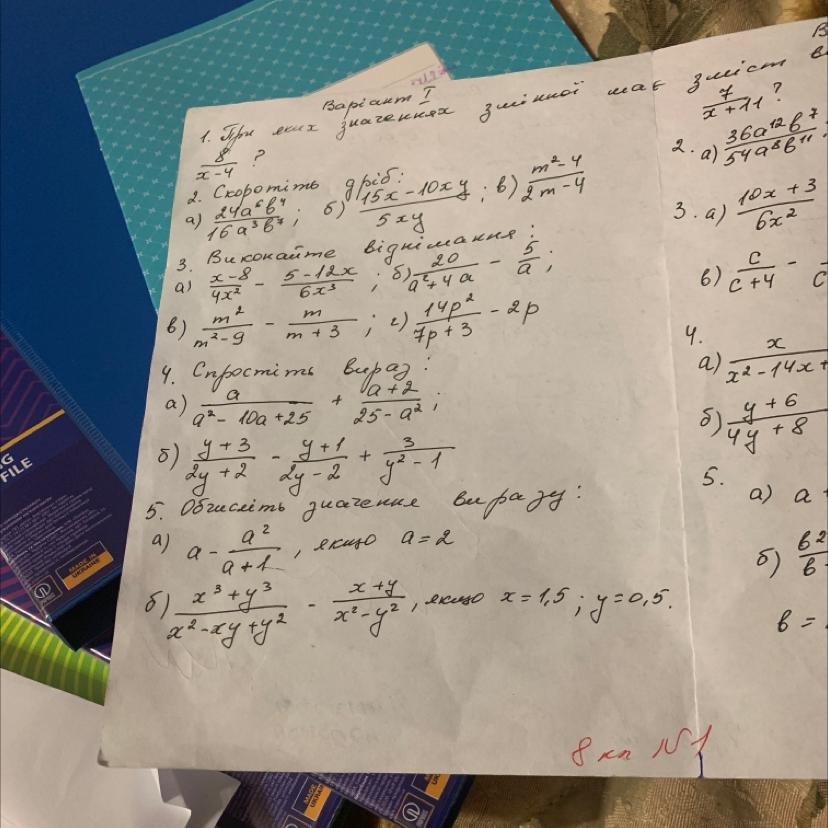 Варіант I
1. При яких значеннях змінної має зміст
8/(x-4) ?
2. Скоротіть дріб:
а) 24a⁶b⁴/16a³b⁷; б) (15x-10xy)/5xy; в) (m²-4)/(2m-4)
3. Виконайте віднімання:
а) (x-8)/4x² - (5-12x)/6x³; б) 20/(a²+4a) - 5/a;
в) m²/(m²-9) - m/(m+3); г) 14p²/(7p+3) - 2p
4. Спростіть вираз:
а) a/(a²-10a+25) + (a+2)/(25-a²);
б) (y+3)/(2y+2) - (y+1)/(2y-2) + 3/(y²-1)
5. Обчисліть значення виразу:
а) a - a²/(a+1), якщо a=2
б) (x³+y³)/(x²-xy+y²) - (x+y)/(x²-y²), якщо x=1,5; y=0,5.
8 кл №1
В
7/(x+11) ?
2. а) 36a¹²b⁷/54a⁸b¹¹
3. а) (10x+3)/6x²
в) c/(c+4) -
4.
а) x/(x²-14x+
б) (y+6)/(4y+8)
5.
а) a
б) b²
b =
FILE
MADE IN
UKRAINE
MADE IN
UKRAINE